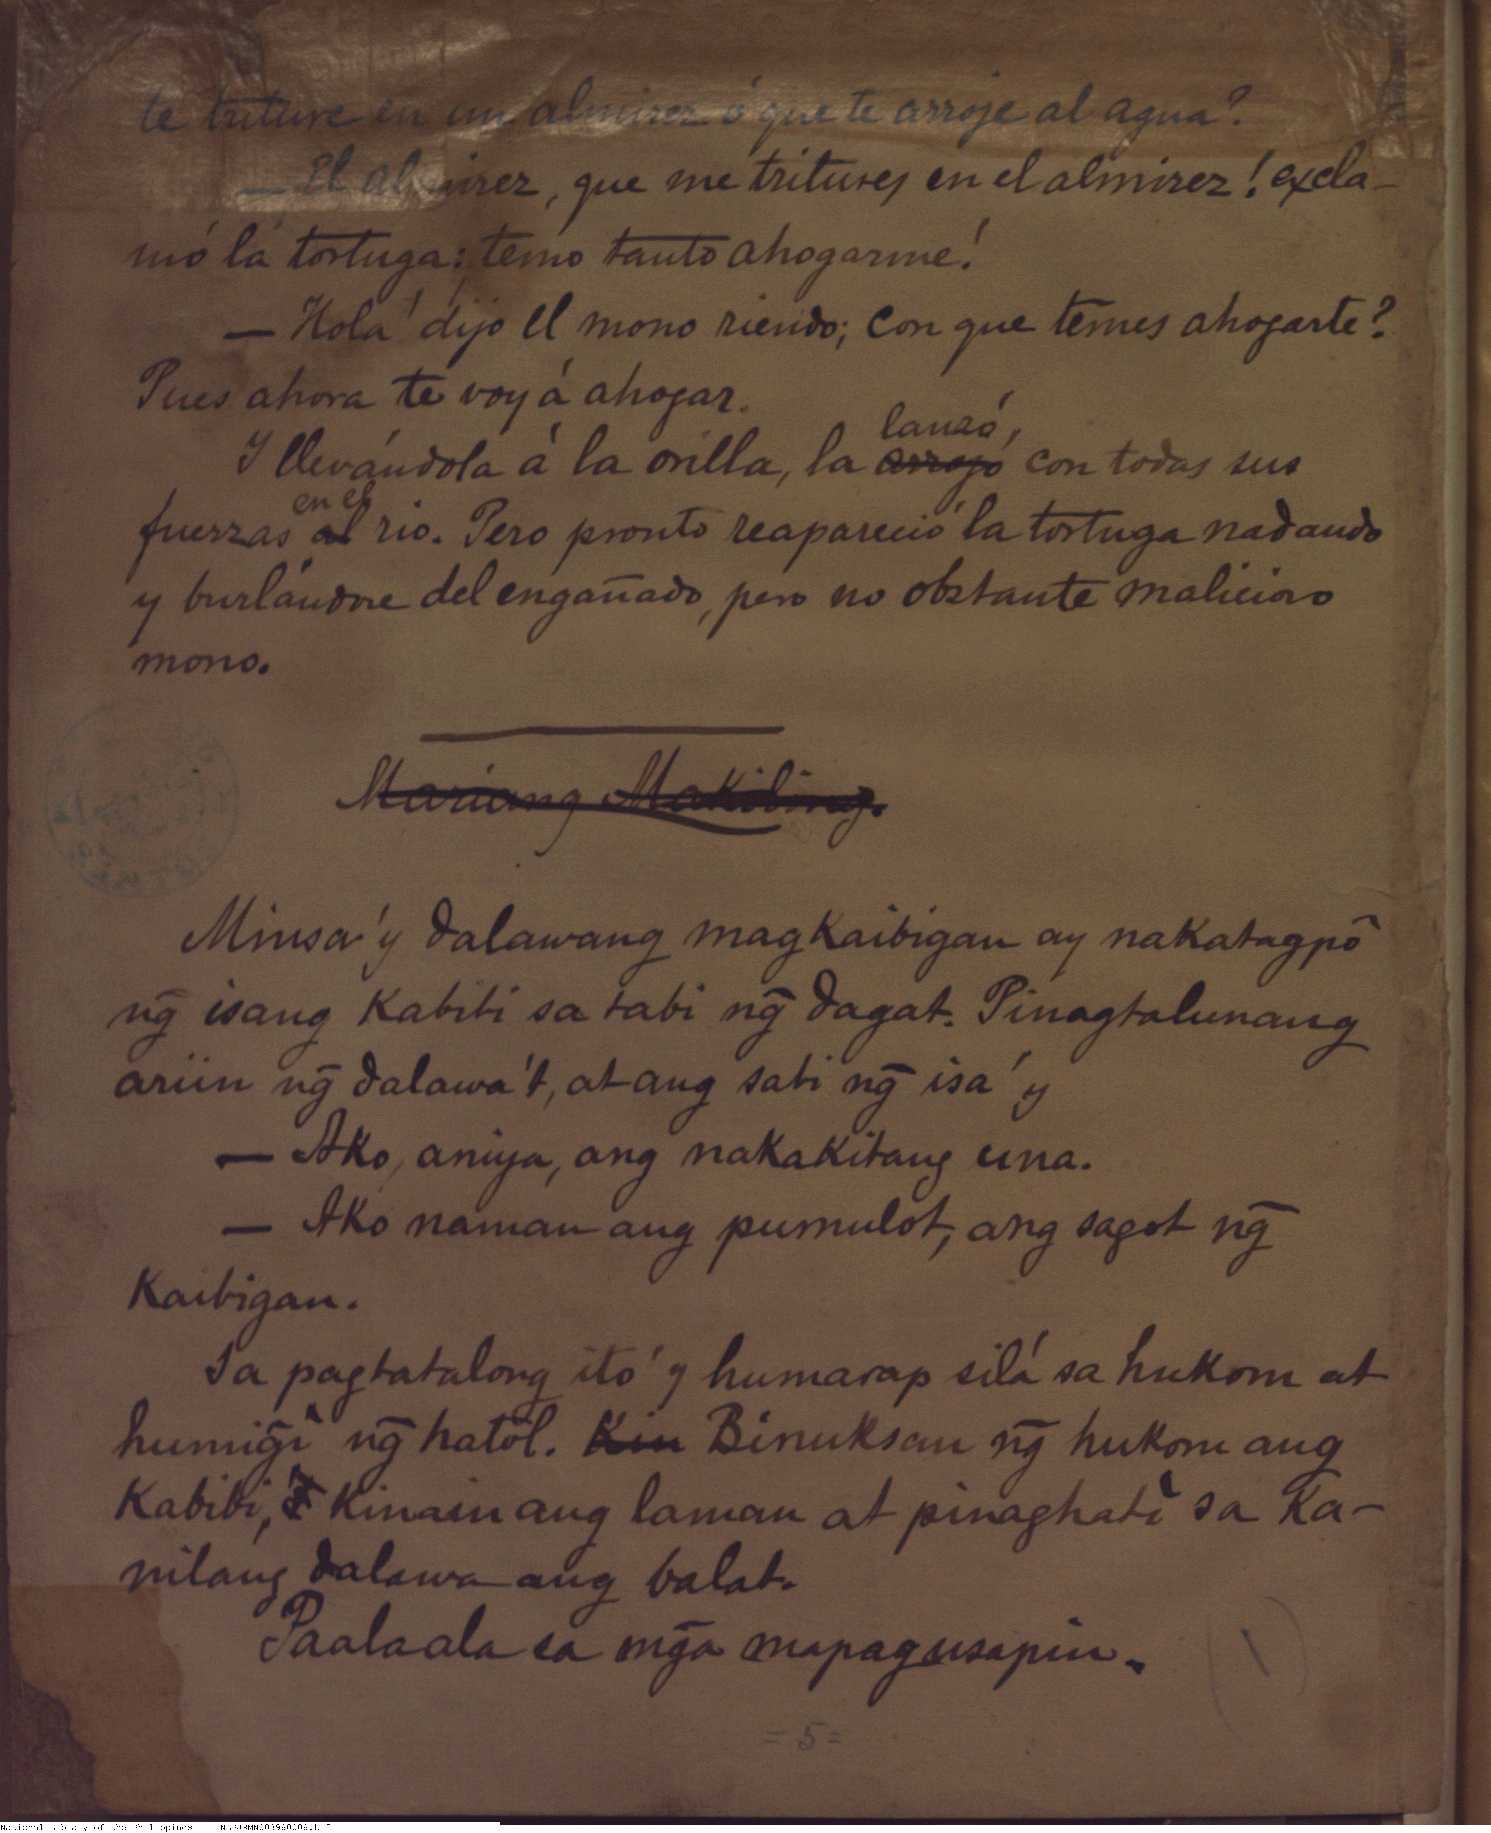 te triture en un almirez ó que te arroje al agua?
— El almirez, que me tritures en el almirez! excla-
mó la tortuga; temo tanto ahogarme!
— Hola! dijo el mono riendo; con que temes ahogarte?
Pues ahora te voy á ahogar.
lanzó,
Y llevándola á la orilla, la arrojó con todas sus
en el
fuerzas al rio. Pero pronto reapareció la tortuga nadando
y burlándose del engañado, pero no obstante malicioso
mono.
Mariang Makiling.
Minsa'y dalawang magkaibigan ay nakatagpô
ng̃ isang kabibi sa tabi ng̃ dagat. Pinagtalunang
ariin ng̃ dalawa't, at ang sabi ng̃ isa'y
— Ako, aniya, ang nakakitang una.
— Ako naman ang pumulot, ang sagot ng̃
kaibigan.
Sa pagtatalong ito'y humarap silá sa hukom at
humig̃ì ng̃ hatol. Kin Binuksan ng̃ hukom ang
kabibi, kinain ang laman at pinaghatì sa ka-
nilang dalawa ang balat.
Paalaala sa mg̃a mapagusapin.
(1)
= 5 =
National Library of the Philippines